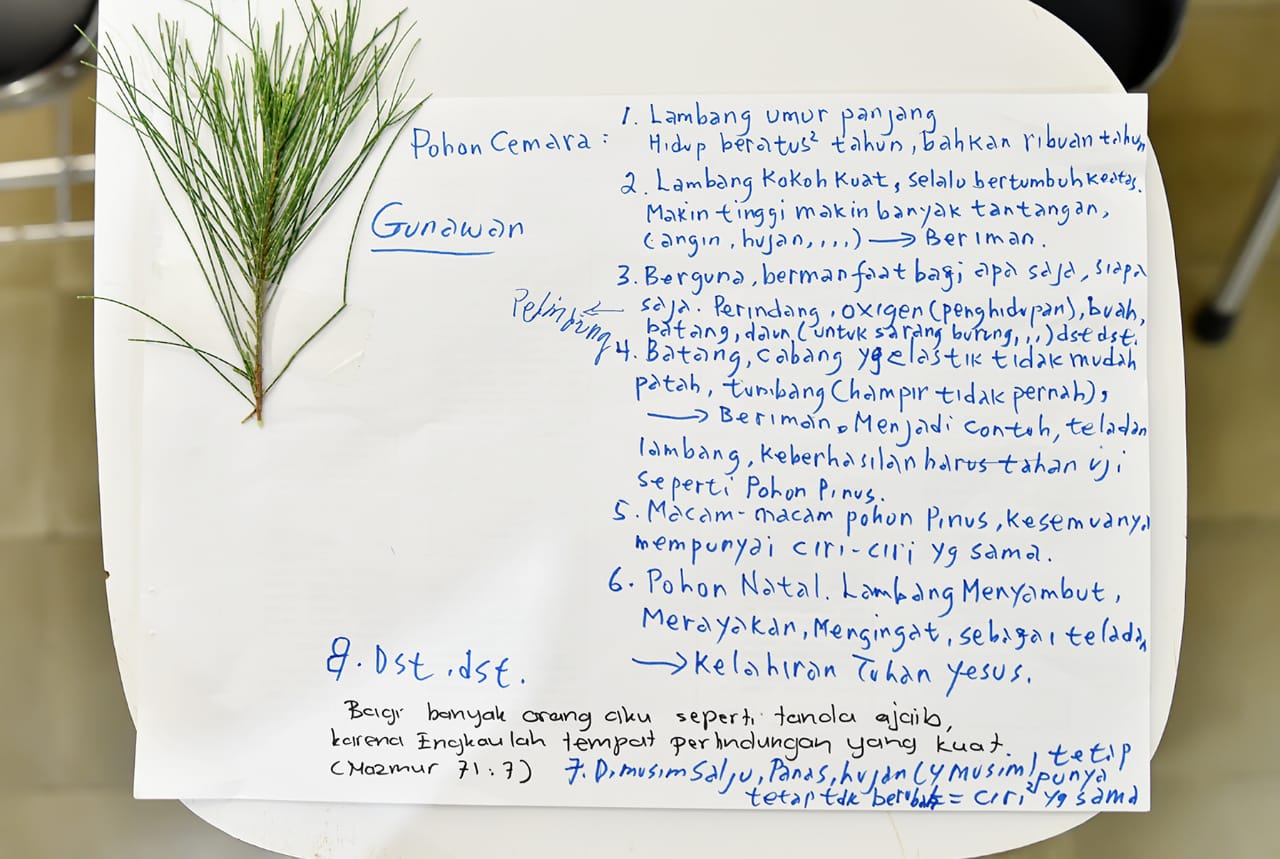 Pohon Cemara :
Gunawan
1. Lambang umur panjang
Hidup beratus² tahun, bahkan ribuan tahun
2. Lambang Kokoh Kuat, selalu bertumbuh keatas.
Makin tinggi makin banyak tantangan,
(angin, hujan, , , ,) → Beriman.
3. Berguna, bermanfaat bagi apa saja, siapa
saja. Perindang, oxigen (penghidupan), buah,
batang, daun (untuk sarang burung, , ,) dst dst.
Pelindung ←
4. Batang, cabang yg elastik tidak mudah
patah, tumbang (hampir tidak pernah),
→ Beriman. Menjadi contoh, teladan
lambang, keberhasilan harus tahan uji
seperti Pohon Pinus.
5. Macam-macam pohon Pinus, kesemuanya
mempunyai ciri-ciri yg sama.
6. Pohon Natal. Lambang Menyambut,
Merayakan, Mengingat, sebagai teladan
→ Kelahiran Tuhan Yesus.
8. Dst. dst.
Bagi banyak orang aku seperti tanda ajaib,
karena Engkaulah tempat perlindungan yang kuat.
(Mazmur 71:7)
7. Dimusim Salju, Panas, hujan (4 musim), tetap
punya
tetap tdk berubah = ciri² yg sama